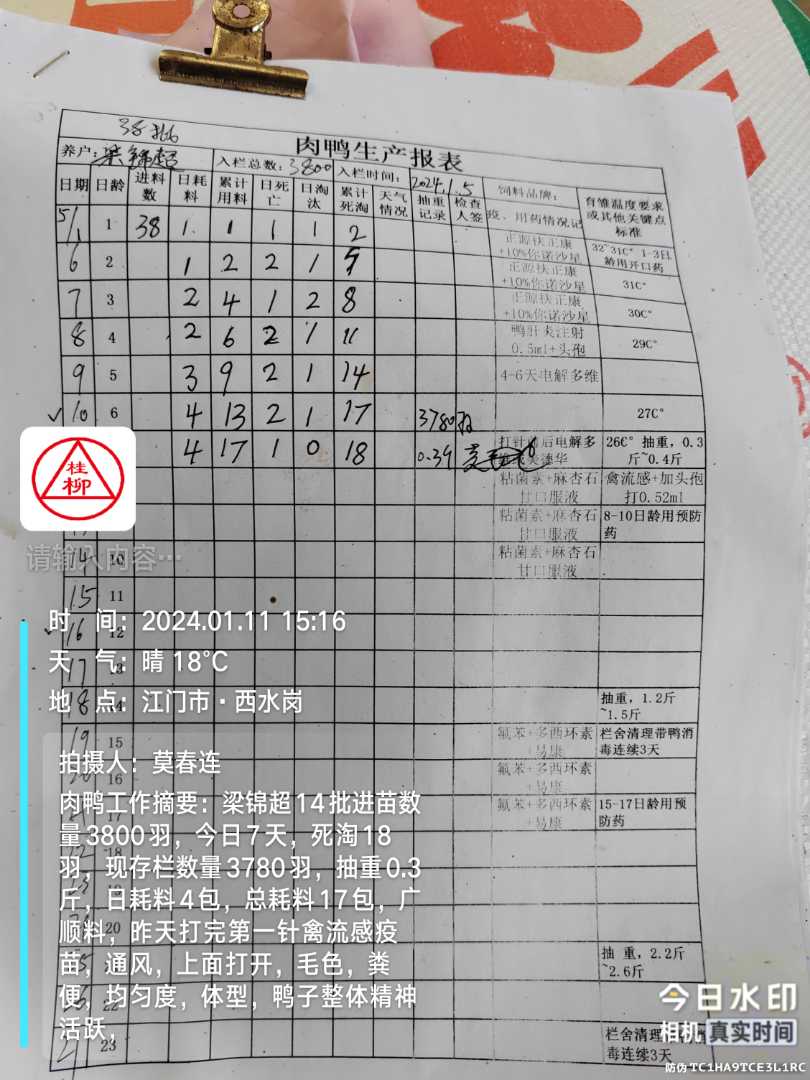 肉鸭生产报表
养户:梁锦超 入栏总数:3800 入栏时间:2024.1.5 饲料品牌:
日期 日龄 进料数 日耗料 累计用料 日死亡 日淘汰 累计死淘 天气情况 抽重记录 检查人签 疫、用药情况记 育雏温度要求或其他关键点标准
5/1 1 38 1 1 1 1 2 正源扶正康+10%你诺沙星 32~31C° 1-3日龄用开口药
6 2 1 2 2 1 5 正源扶正康+10%你诺沙星 31C°
7 3 2 4 1 2 8 正源扶正康+10%你诺沙星 30C°
8 4 2 6 2 1 11 鸭肝炎注射0.5ml+头孢 29C°
9 5 3 9 2 1 14 4-6天电解多维
10 6 4 13 2 1 17 3780 27C°
4 17 1 0 18 0.39 26C° 抽重,0.3斤~0.4斤
粘菌素+麻杏石甘口服液 禽流感+加头孢打0.52ml
粘菌素+麻杏石甘口服液 8-10日龄用预防药
14 10 粘菌素+麻杏石甘口服液
15 11
16 12
17 13
18 抽重,1.2斤~1.5斤
19 15 氟苯+多西环素+易康 栏舍清理带鸭消毒连续3天
16 氟苯+多西环素+易康
17 氟苯+多西环素+易康 15-17日龄用预防药
18
20
抽 重,2.2斤~2.6斤
22
23 栏舍清理 毒连续3天
桂柳
请输入内容…
时 间:2024.01.11 15:16
天 气:晴 18℃
地 点:江门市·西水岗
拍摄人:莫春连
肉鸭工作摘要:梁锦超14批进苗数
量3800羽,今日7天,死淘18
羽,现存栏数量3780羽,抽重0.3
斤,日耗料4包,总耗料17包,广
顺料,昨天打完第一针禽流感疫
苗,通风,上面打开,毛色,粪
便,均匀度,体型,鸭子整体精神
活跃,
今日水印
相机 真实时间
防伪 TC1HA9TCE3L1RC